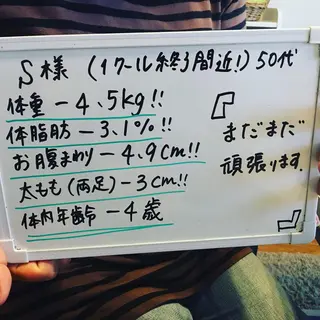 S様 (1クール終了間近!) 50代
体重 -4.5kg!!
体脂肪 -3.1%!!
お腹まわり -4.9cm!!
太もも(両足) -3cm!!
体内年齢 -4歳
「まだまだ
頑張ります。」